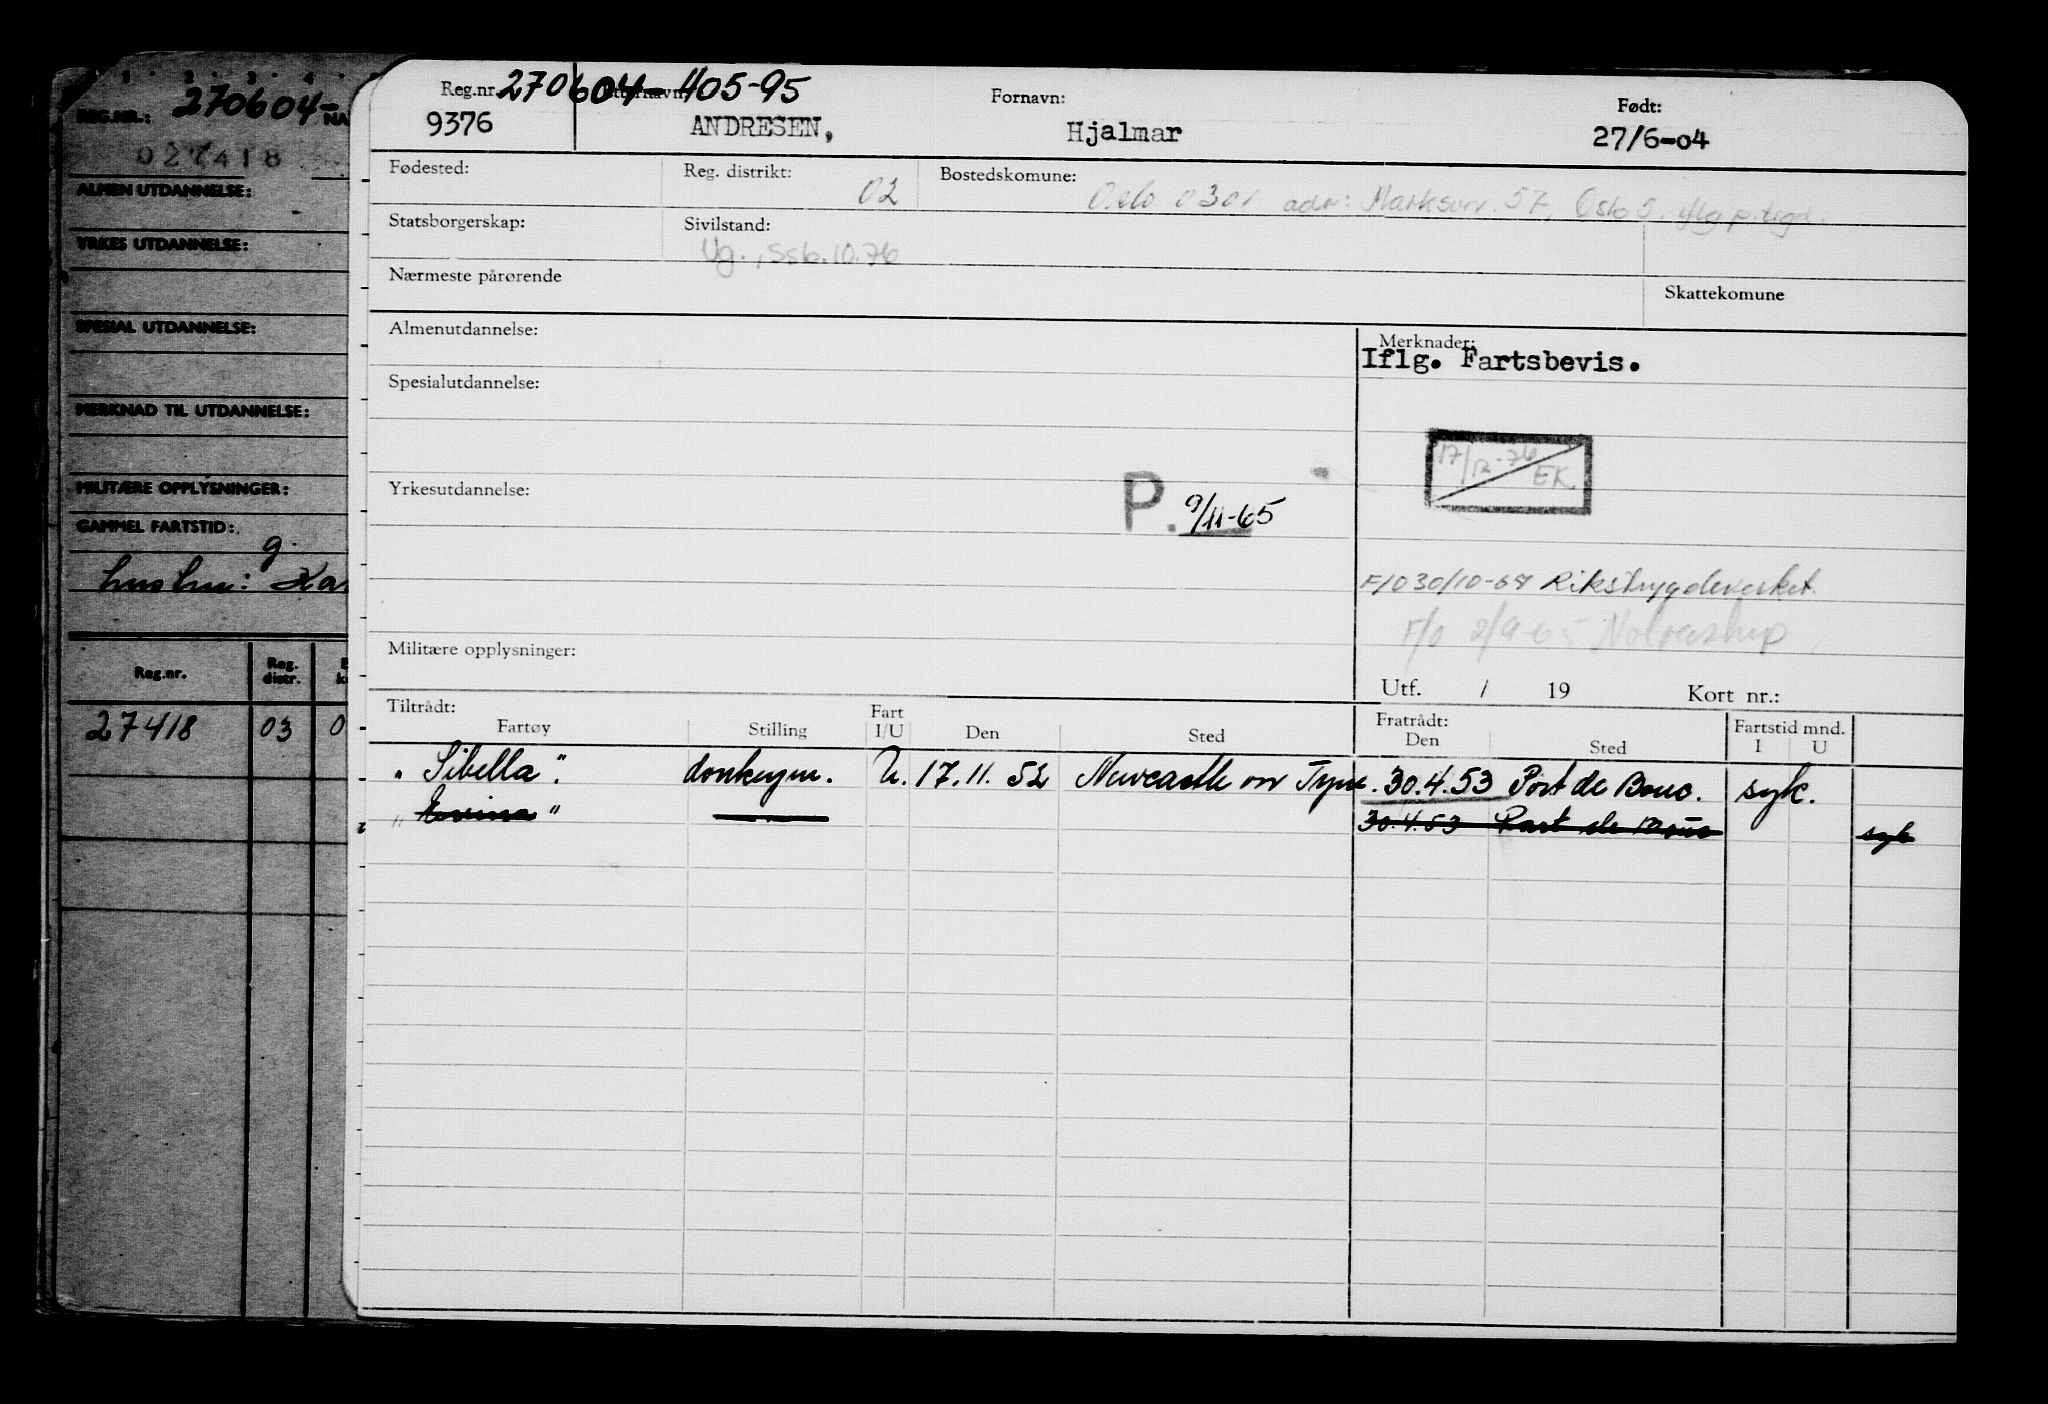 1 2 3 4
REG.NR.: 270604- NA
027418
ALMEN UTDANNELSE:
YRKES UTDANNELSE:
SPESIAL UTDANNELSE:
MERKNAD TIL UTDANNELSE:
MILITÆRE OPPLYSNINGER:
GAMMEL FARTSTID:
g.
Reg.nr. Reg. distr.
27418 03 0
Reg.nr. 270604-405-95 Fornavn: Født:
9376 ANDRESEN, Hjalmar 27/6-04
Fødested: Reg. distrikt: 02 Bostedskomune: Oslo 0301 adr: Marksvn. 57, Oslo 5.
Statsborgerskap: Sivilstand:
Ug., SSb.10.76
Nærmeste pårørende Skattekomune
Almenutdannelse: Merknader:
Iflg. Fartsbevis.
Spesialutdannelse:
17/12-76 EK
Yrkesutdannelse: P. 9/11-65
F/O 30/10-67 Rikstrygdeverket.
F/O 2/9-65
Militære opplysninger:
Utf. / 19 Kort nr.:
Tiltrådt: Fratrådt:
Fartøy Stilling Fart I/U Den Sted Den Sted Fartstid mnd. I U
"Sibella". donkeym. U. 17.11.52 Newcastle on Tyne. 30.4.53 Port de Bouc. syk.
" " 30.4.53 Port de Bouc syk